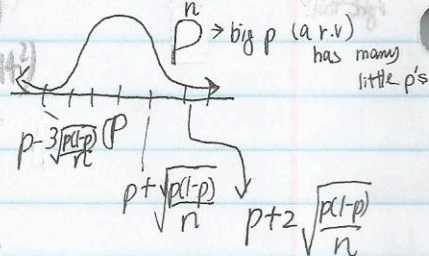 n
P → big p (a r.v)
has many
little p's
p-3√(p(1-p)/n)
p
p+√(p(1-p)/n)
p+2√(p(1-p)/n)